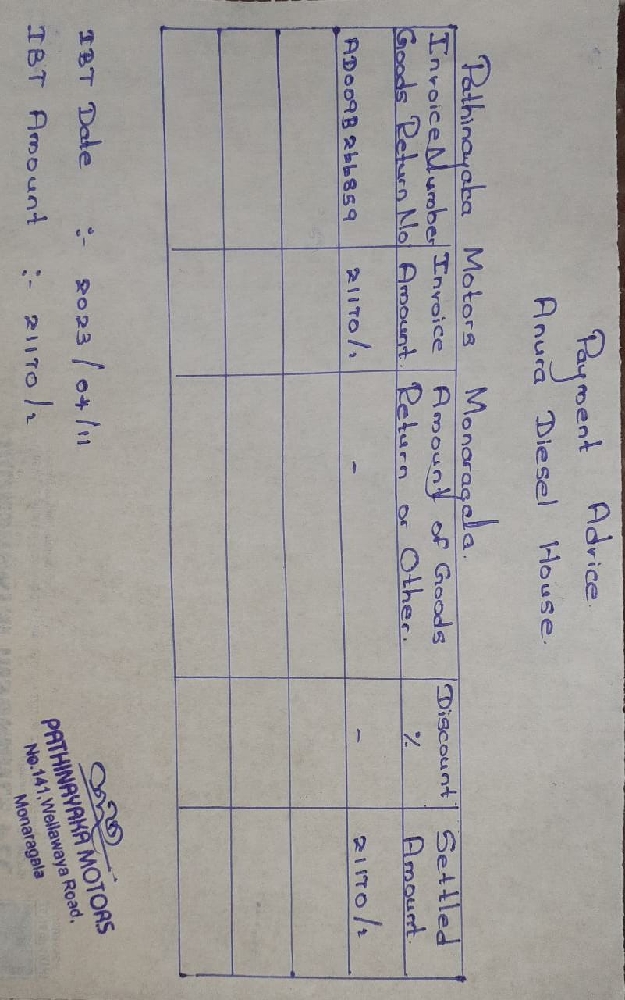 Payment Advice.
Anura Diesel House.
Pathinayaka Motors Monaragala.
Invoice Number Invoice Amount of Goods Discount Settled
Goods Return No Amount. Return or Other. % Amount.
AD009B266859 21170/2 - - 21170/2
IBT Date :- 2023/04/11
IBT Amount :- 21170/2
PATHINAYAKA MOTORS
No.141, Wellawaya Road,
Monaragala